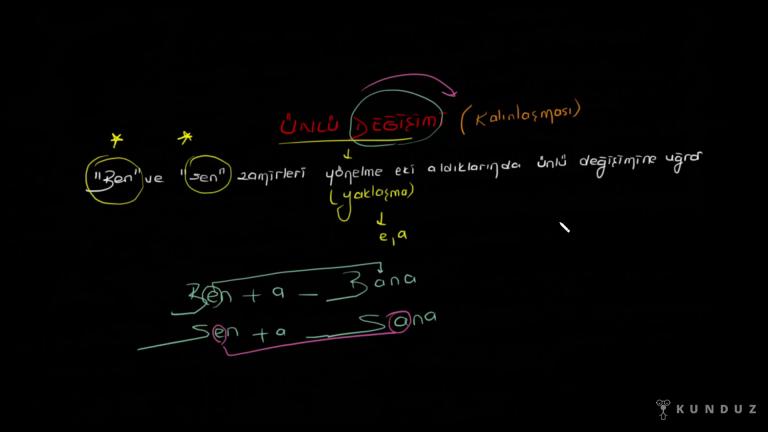 ÜNLÜ DEĞİŞİM (Kalınlaşması)
"Ben" ve "sen" zamirleri yönelme eki aldıklarında ünlü değişimine uğrar
(yaklaşma)
e, a
Ben + a — Bana
Sen + a — Sana
KUNDUZ